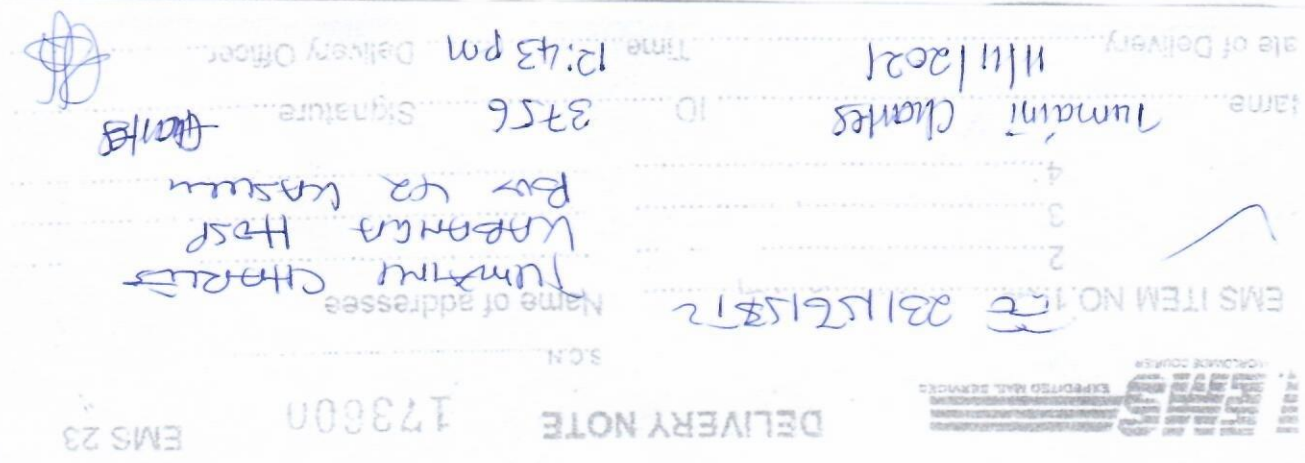 EMS
EXPEDITED MAIL SERVICES
WORLDWIDE COURIER
DELIVERY NOTE 173600 EMS 23
S.C.N
EMS ITEM NO.1 Name of addresses
TUMAINI CHARLES
2 KABANGA HOSP
3 BOX 42 KASULU
4
Name Tumaini Charles ID 3756 Signature Charles
ate of Delivery 11/11/2021 Time 12:43 pm Delivery Officer